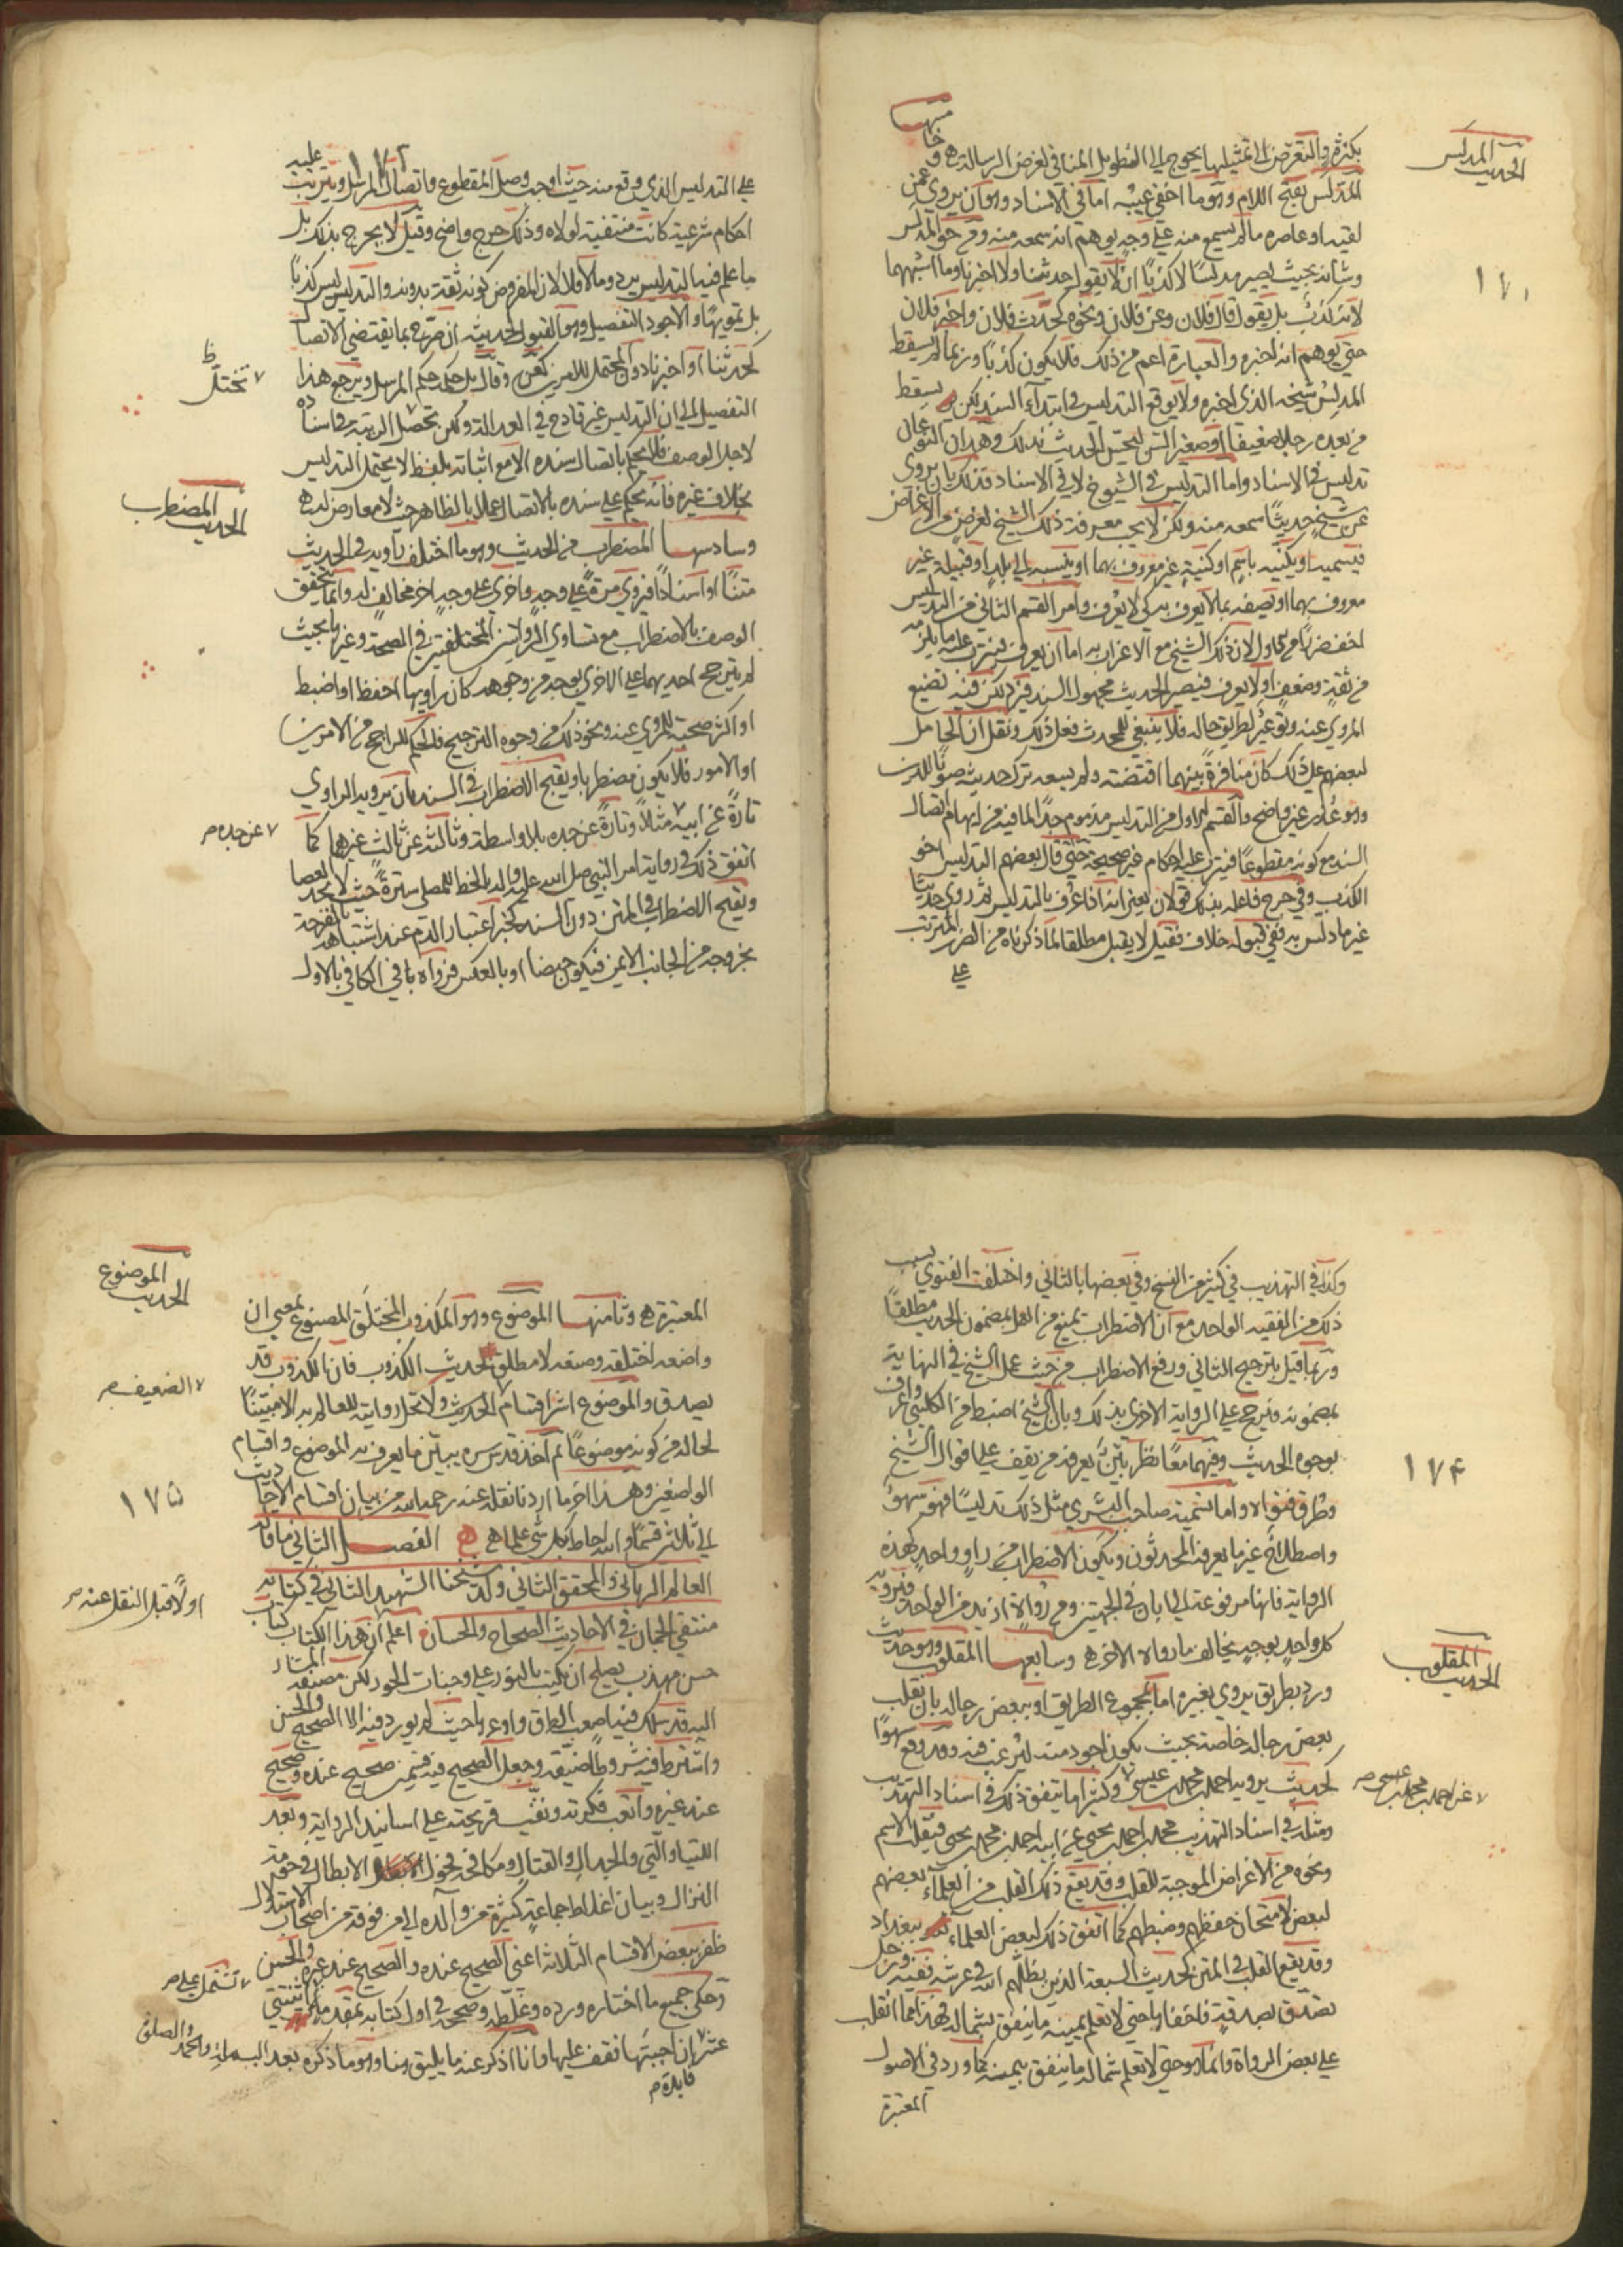 الحديث المدلس
١٧١
بكثرة والتعرض الى تمثيلها يحوج الى التطويل المنافي لغرض الرسالة وخامسها
المدلس بفتح اللام وهو ما اخفي عيبه اما في الاسناد وهو ان يروي عمن
لقيه او عاصره ما لم يسمع منه على وجه يوهم انه سمعه منه ومن حق المدلس
وشانه بحيث يصير مدلسا لا كذبا ان لا يقول حدثنا ولا اخبرنا وما اشبههما
لانه كذب بل يقول قال فلان وعن فلان ونحوه كحدث فلان واخبر فلان
حتى يوهم انه اخبره والعبارة اعم من ذلك فلا يكون كذبا وربما لم يسقط
المدلس شيخه الذي اخبره ولا يوقع التدليس في ابتداء السند لكن يسقط
من بعده رجلا ضعيفا او صغير السن ليحسن الحديث بذلك وهذان النوعان
تدليس في الاسناد واما التدليس في الشيوخ لا في الاسناد فذلك بان يروي
عن شيخ حديثا سمعه منه ولكن لا يحب معرفة ذلك الشيخ لغرض من الاغراض
فيسميه او يكنيه باسم او كنية غير معروف بهما او ينسبه الى بلد او قبيلة غير
معروف بهما او يصفه بما لا يعرف به كي لا يعرف وامر القسم الثاني من التدليس
اخف ضررا من الاول لان ذلك الشيخ مع الاغراب به اما ان يعرف فيترتب عليه ما يلزمه
من ثقة وضعف او لا يعرف فيصير الحديث مجهول السند فيرد لكن فيه تضييع
المروي عنه وتوعير لطريق حاله فلا ينبغي للمحدث فعل ذلك ونقل ان الحامل
لبعضهم على ذلك كان منافرة بينهما اقتضته ولم يسعه ترك حديثه صونا للدين
وهو عذر غير واضح والقسم الاول من التدليس مذموم جدا لما فيه من ايهام اتصال
السند مع كونه مقطوعا فيترتب عليه احكام غير صحيحة حتى قال بعضهم التدليس اخو
الكذب وفي جرح فاعله بذلك قولان يعني انه اذا عرف بالتدليس ثم روى حديثا
غير ما دلس به ففي قبوله خلاف فقيل لا يقبل مطلقا لما ذكرناه من الضرر المترتب
على
١٧٢
على التدليس الذي وقع منه حيث اوجب وصل المقطوع واتصال المرسل ويترتب عليه
احكام شرعية كانت منتفية لولاه وذلك جرح واضح وقيل لا يجرح بذلك بل
ما علم فيه التدليس يرد وما لا فلا لان المفروض كونه ثقة بدونه والتدليس ليس كذبا
بل تمويها والاجود التفصيل وهو القبول لحديثه ان صرح بما يقتضي الاتصال
كحدثنا او اخبرنا دون المحتمل للامرين كعن وقال بل حكمه حكم المرسل ويرجع هذا
التفصيل الى ان التدليس غير قادح في العدالة ولكن تحصل الريبة في اسناده
لاجل الوصف فلا يحكم باتصال سنده الا مع اثباته بلفظ لا يحتمل التدليس
بخلاف غيره فانه يحكم على سنده بالاتصال عملا بالظاهر حيث لا معارض له
الحديث المضطرب
وسادسها المضطرب من الحديث وهو ما اختلف راويه في الحديث
متنا او اسنادا فيروي مرة على وجه واخرى على وجه اخر مخالف له وانما يتحقق
الوصف بالاضطراب مع تساوي الروايتين المختلفتين في الصحة وغيرها بحيث
لم يترجح احديهما على الاخرى بوجه من وجوهه كان راويها احفظ او اضبط
او اكثر صحبة للمروي عنه ونحو ذلك من وجوه الترجيح فالحكم للراجح من الامرين
او الامور فلا يكون مضطربا ويقبح الاضطراب في السند بان يرويه الراوي
تارة عن ابيه مثلا وتارة عن جده بلا واسطة وثالثة عن ثالث غيرهما كما
٧ عن جده م
اتفق ذلك في رواية امر النبي صلى الله عليه واله بالخط للمصلي سترة حيث لا يجد العصا
ويقبح الاضطراب في المتن دون السند كخبر اعتبار الدم عند اشتباهه بالقرحة
بخروجه من الجانب الايمن فيكون حيضا او بالعكس فرواه بما في الكافي بالاول
١٧٤
وكذا في التهذيب في كثير من النسخ وفي بعضها بالثاني واختلفت الفتوى بسبب
ذلك من الفقيه الواحد مع ان الاضطراب يمنع من العمل بمضمون الحديث مطلقا
وربما قيل بترجيح الثاني ورفع الاضطراب من حيث عمل الشيخ في النهاية
بمضمونه فيرجح على الرواية الاخرى بذلك وبان الشيخ اضبط من الكليني واعرف
بوجوه الحديث وفيهما معا نظر بين يعرفه من يقف على احوال الشيخ
وطرق فتواه واما تسمية صاحب البشرى مثل ذلك تدليسا فهو سهو
واصطلاح غير ما يعرفه المحدثون ويكون الاضطراب من راو واحد كهذه
الرواية فانها مرفوعة الى ابان في الجهتين ومن رواة ازيد من الواحد فيرويه
كل واحد بوجه يخالف ما رواه الاخر وسابعها المقلوب وهو حديث
الحديث المقلوب
ورد بطريق يروي بغيره اما بمجموع الطريق او ببعض رجاله بان يقلب
بعض رجاله خاصة بحيث يكون اجود منه ليرغب فيه وقد يقع سهوا
كحديث يرويه احمد بن محمد بن عيسى وكثيرا ما يتفق ذلك في اسناد التهذيب
٧ عن احمد بن محمد بن عيسى م
ومثله في اسناد التهذيب محمد بن احمد بن يحيى عن ابيه احمد بن محمد بن يحيى فينقلب الاسم
ونحوه من الاغراض الموجبة للقلب وقد يقع ذلك القلب من العلماء بعضهم
لبعض لامتحان حفظهم وضبطهم كما اتفق ذلك لبعض العلماء ببغداد
وقد يقع القلب في المتن كحديث السبعة الذين يظلهم الله في عرشه ففيه ورجل
تصدق بصدقة فاخفاها حتى لا تعلم يمينه ما ينفق بشماله فهذا مما انقلب
على بعض الرواة وانما هو حتى لا تعلم شماله ما ينفق بيمينه كما ورد في الاصول
المعتبرة
الحديث الموضوع
١٧٥
المعتبرة وثامنها الموضوع وهو المكذوب المختلق المصنوع بمعنى ان
واضعه اختلقه وصنعه لا مطلق الحديث الكذوب فان الكذوب قد
يصدق والموضوع اشر اقسام الحديث ولا تحل روايته للعالم به الا مبينا
٧ الضعيف م
لحاله من كونه موضوعا ثم اخذ قدس سره يبين ما يعرف به الموضوع واقسام
الواضعين وهذا اخر ما اردنا نقله عنه رحمه الله من بيان اقسام الاحاديث
الى ثلثين قسما والله احاط بكل شئ علما الفصل الثاني ما قاله
العالم الرباني والمحقق الثاني ولد شيخنا الشهيد الثاني في كتابه
اولا قبل النقل عنه م
منتقى الجمان في الاحاديث الصحاح والحسان اعلم ان هذا الكتاب كتاب
حسن مهذب يصلح ان يكتب بالنور على وجنات الحور لكن مصنفه المشار
اليه قد سلك فيه اصعب الطرق واوعرها حيث لم يورد فيه الا الصحيح والحسن
واشترط فيه شروطا ضيقة وجعل الصحيح فيه قسمين صحيح عنده وصحيح
عند غيره واتعب فكرته ونقب قريحته على اسانيد الرواية وبعد
اللتيا والتي والجدال والقتال ومكافحة فحول الابطال في حومة
النزال وبيان اغلاط جماعة كثيرة من والده الى من فوقه من اصحاب الاستدلال
ظفر ببعض الاقسام الثلاثة اعني الصحيح عنده والصحيح عند غيره والحسن
وحكى جميع ما اختاره ورده وغلطه وصححه في اول كتابه بمقدمة اثنتي
٧ تشتمل على م
عشر ان احببتها فقف عليها وانا اذكر عنه ما يليق بنا وهو ما ذكره بعد البسملة والحمد والصلوة
فايدة م